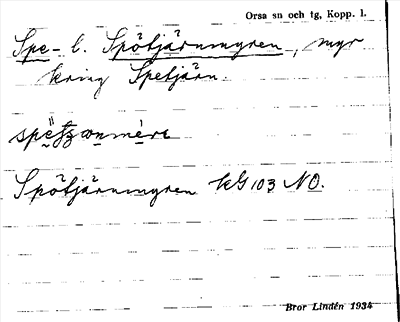 Orsa sn och tg, Kopp. l.
Spe- l. Spötjärnmyren, myr
kring Spetjärn.
Spötjärnmyren KG 103 NO.
Bror Lindén 1934